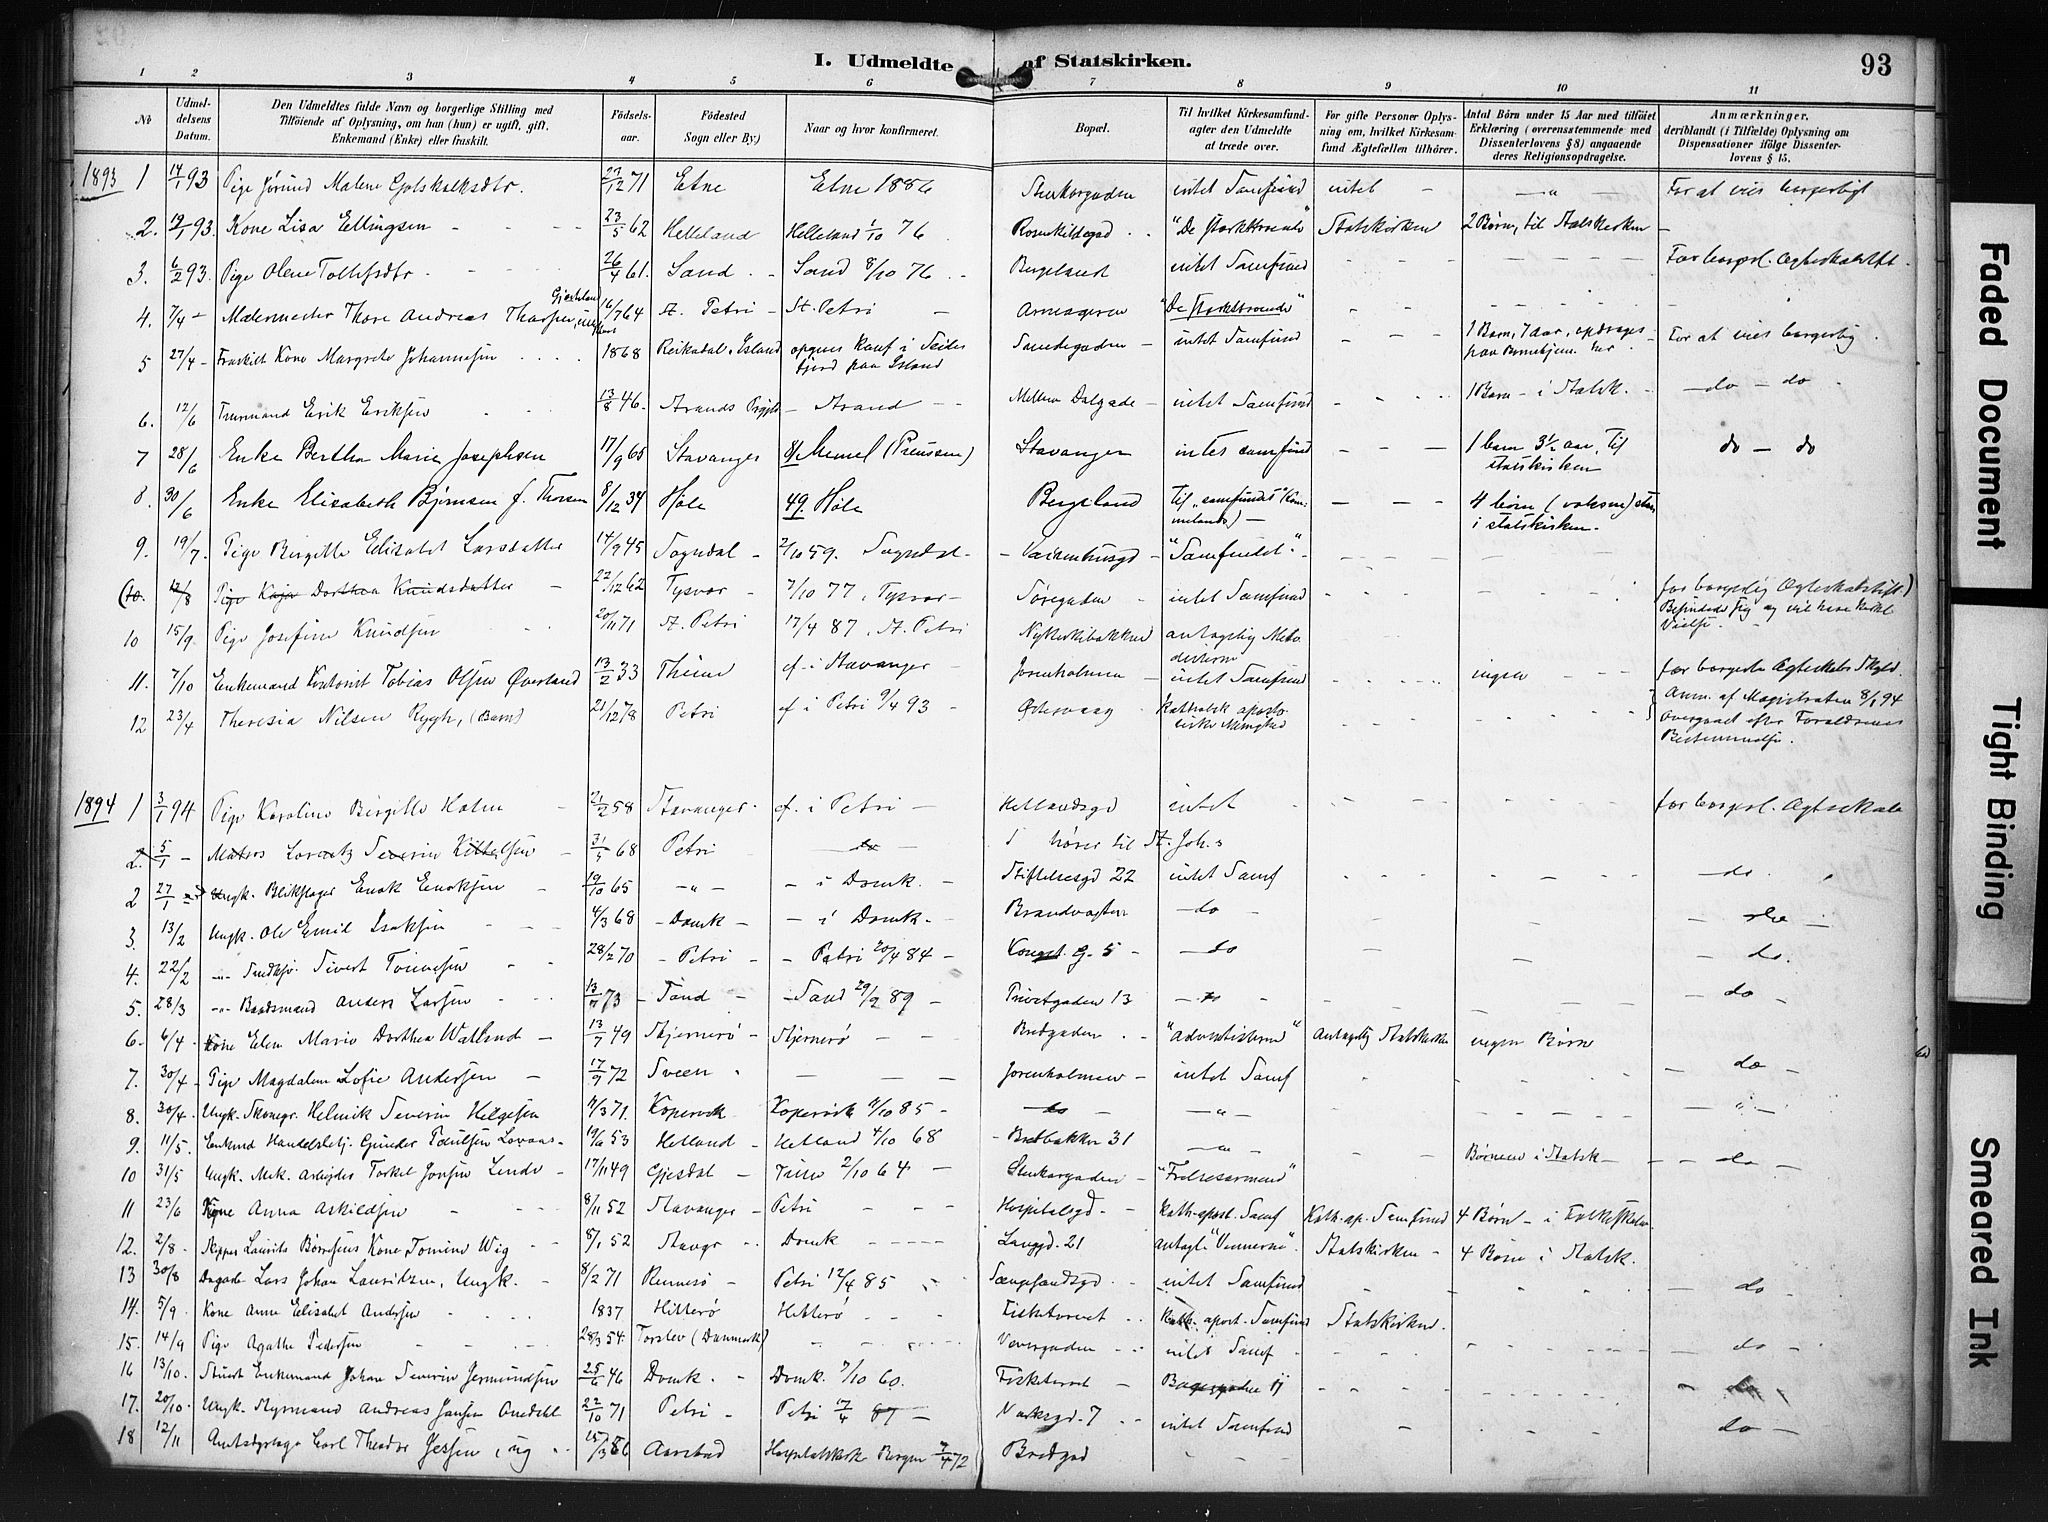 93
I. Udmeldte af Statskirken.
1 2 3 4 5 6 7 8 9 10 11
No
Udmel-
delsens
Datum.
Den Udmeldtes fulde Navn og borgerlige Stilling med
Tilföiende af Oplysning, om han (hun) er ugift, gift,
Enkemand (Enke) eller fraskilt.
Födsels-
aar.
Födested
Sogn eller By.)
Naar og hvor konfirmeret.
Bopæl.
Til hvilket Kirkesamfund-
agter den Udmeldte
at træde over.
For gifte Personer Oplys-
ning om, hvilket Kirkesam-
fund Ægtefællen tilhörer.
Antal Börn under 15 Aar med tilföiet
Erklæring (overensstemmende med
Dissenterlovens § 8) angaaende
deres Religionsopdragelse.
Anmærkninger,
deriblandt (i Tilfælde) Oplysning om
Dispensationer ifölge Dissenter-
lovens § 15.
1893 1 14/1 93 Pige Jörund Malene 27/12 71 Etne Etne 1886 Stenkargaden intet Samfund intet - " - For at vies borgerligt
2. 19/1 93. Kone Lisa Ellingsen 23/5 62 Helleland Helleland 1/10 76 Rosenkildegd "De Starktroende" Statskirken 2 Børn, til Statskirken
3. 6/2 93. Pige Olene Tollefsdtr. 26/4 61. Sand Sand 8/10 76 Bergeland intet Samfund For borgerl. Ægteskabstift.
4. 7/4 - Malermester Thore Andreas 16/7 64 St. Petri St. Petri "De Starktroende"
5 27/4 - Fraskilt Kone Margrete Johannesen 1868 Island intet Samfund 1 Barn, 7 aar, opdrages For at vies borgerlig
fjord paa Island paa Børnehjem her
6. 12/6 Erik Eriksen 13/8 46. Strand Strand Mellem Dalgade intet Samfund 1 Barn - i Statsk. - do - do
7 28/6 Enke Bertha Marie Josephsen 17/9 65 Stavanger Memel (Preussen) Stavanger intet samfund 1 barn 3½ aar, til do - do
statskirken
8. 30/6 Enke Elisabeth Bjørnsen f. Thorsen 8/12 34 Høle 49. Høle Bergeland Til "samfundet" 4 børn (voksne)
i statskirken.
9. 19/7. Pige Birgitte Elisabet Larsdatter 14/9 45 Sogndal 2/10 59. Sogndal "Samfundet"
(10. 12/8 Pige Kaja Dorthea Knudsdatter 22/12 62 Tysvær 7/10 77, Tysvær Søregaden intet Samfund for borgerlig Ægteskabstift.)
10 15/9. Pige Josefine Knudsen 20/11 71 St. Petri 17/4 87, St. Petri Nykirkebakken antagelig Meto-
disterne
11. 7/10 Enkemand Tobias Olsen Øverland 13/2 33 Thime cf. i Stavanger Jorenholmen intet Samfund ingen
12 23/4 Theresia Nilsen Rygh, (Barn) 21/12 78 Petri cf i Petri 9/4 93 Østervaag Katholsk aposto-
liske Menighed
Anm. af Magistraten 8/1 94
Overgaaet efter Forældrenes
Bestemmelse.
1894 1 3/1 94 Pige Karoline Birgitte Holm 21/2 58 Stavanger cf. i Petri Hetlandsgd intet for borgerl. Ægteskab
2. 5/1 - Severin Kittelsen 31/5 68 Petri do hører til St. Joh.s
2 27/1 Ungk. Blikslager Enok Enoksen 19/10 65 - " - - i Domk. Stiftelsesgd 22 intet Samf do.
3. 13/2 Ungk. Ole Emil Isaksen 4/3 68 - Domk - - i Domk. Brandvagten - do
4. 22/2 Sivert Tønnesen 28/2 70 - Petri - Petri 20/4 84 - Konges. g. 5 - do - do.
5. 28/3 Baadsmand Anders Larsen 13/7 73 Sand Sand 29/9 89 13 - do - do
6. 6/4 Kone Elen Marie Dorthea Watland 13/7 49 Stjernerø Stjernerø Bredgaden "Adventisterne" Antagelig Statskirken ingen Børn
7. 30/4 Pige Magdalene Sofie Andersen 17/9 72 Sveen Jorenholmen intet Samf do
8. 30/4. Ungk. Helmik Severin Helgesen 11/3 71. Kopervik Kopervik 11/10 85 - do - - " -
9. 11/5. Enkmd Handelsbetj. Gunder Poulsen 19/6 53 Hetland Hetland 4/10 68 Bredbakken 31 - " -
10 31/5 Ungk. Mek. Arbeider Torkel Jonsen Lende 17/11 49 Gjesdal Time 2/10 64 Stenkargaden "Frelsesarmeen" Børnene i Statsk - do -
11 23/6 Kone Anna Askildsen 8/11 52 Stavanger Petri Hospitalsgd. Kath-apost. Samf Kath. ap. Samfund 4 Børn - i Folkeskolen
12. 2/8. Skipper Laurits Børresens Kone Tomine Wig 8/1 52 Stavgr Domk Langgd. 21 antagl. "Vennerne" Statskirken 4 Børn i Statsk.
13 30/8 Lars Johan Lauridsen, Ungk. 8/2 71 Rennesø Petri 12/4 85 intet Samfund do
14. 5/9. Kone Anne Elisabet Andersen 1837 Hitterø Hitterø Fisketorvet Kath. apost. Samfund Statskirken.
15. 14/9 Pige Agathe Pedersen 28/3 54. Torslev (Danmark) Vævergaden intet Samf do
16 13/10. Stuert Enkemand Johan Severin Germundsen 25/6 46 Domk. Domk. 7/10 60. Fisketorvet do
17. 20/10. Ungk. Styrmand Andreas Jansen 22/10 71 Petri Petri 17/4 87 7 intet Samfund do
18 12/11 Carl Theodor Jessen, ug 15/3 56 Aarstad Hospitalskirk Bergen 7/4 72 Bredgad
Faded Document
Tight Binding
Smeared Ink